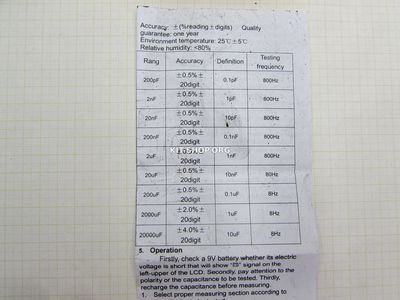 Accuracy: ±(%reading±digits) Quality
guarantee: one year
Environment temperature: 25℃±5℃
Relative humidity: <80%
Rang Accuracy Definition Testing frequency
200pF ±0.5%± 20digit 0.1pF 800Hz
2nF ±0.5%± 20digit 1pF 800Hz
20nF ±0.5%± 20digit 10pF 800Hz
200nF ±0.5%± 20digit 0.1nF 800Hz
2uF ±0.5%± 20digit 1nF 800Hz
20uF ±0.5%± 20digit 10nF 80Hz
200uF ±0.5%± 20digit 0.1uF 8Hz
2000uF ±2.0%± 20digit 1uF 8Hz
20000uF ±4.0%± 20digit 10uF 8Hz
5. Operation
Firstly, check a 9V battery whether its electric
voltage is short that will show "" signal on the
left-upper of the LCD. Secondly, pay attention to
polarity or the capacitance to be tested. Thirdly,
recharge the capacitance before measuring.
1. Select proper measuring section according to